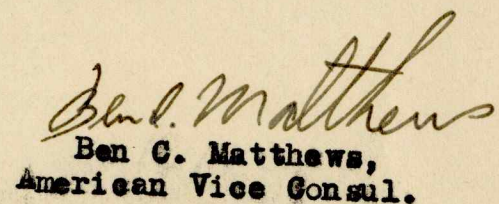 Ben C. Matthews
Ben C. Matthews,
American Vice Consul.